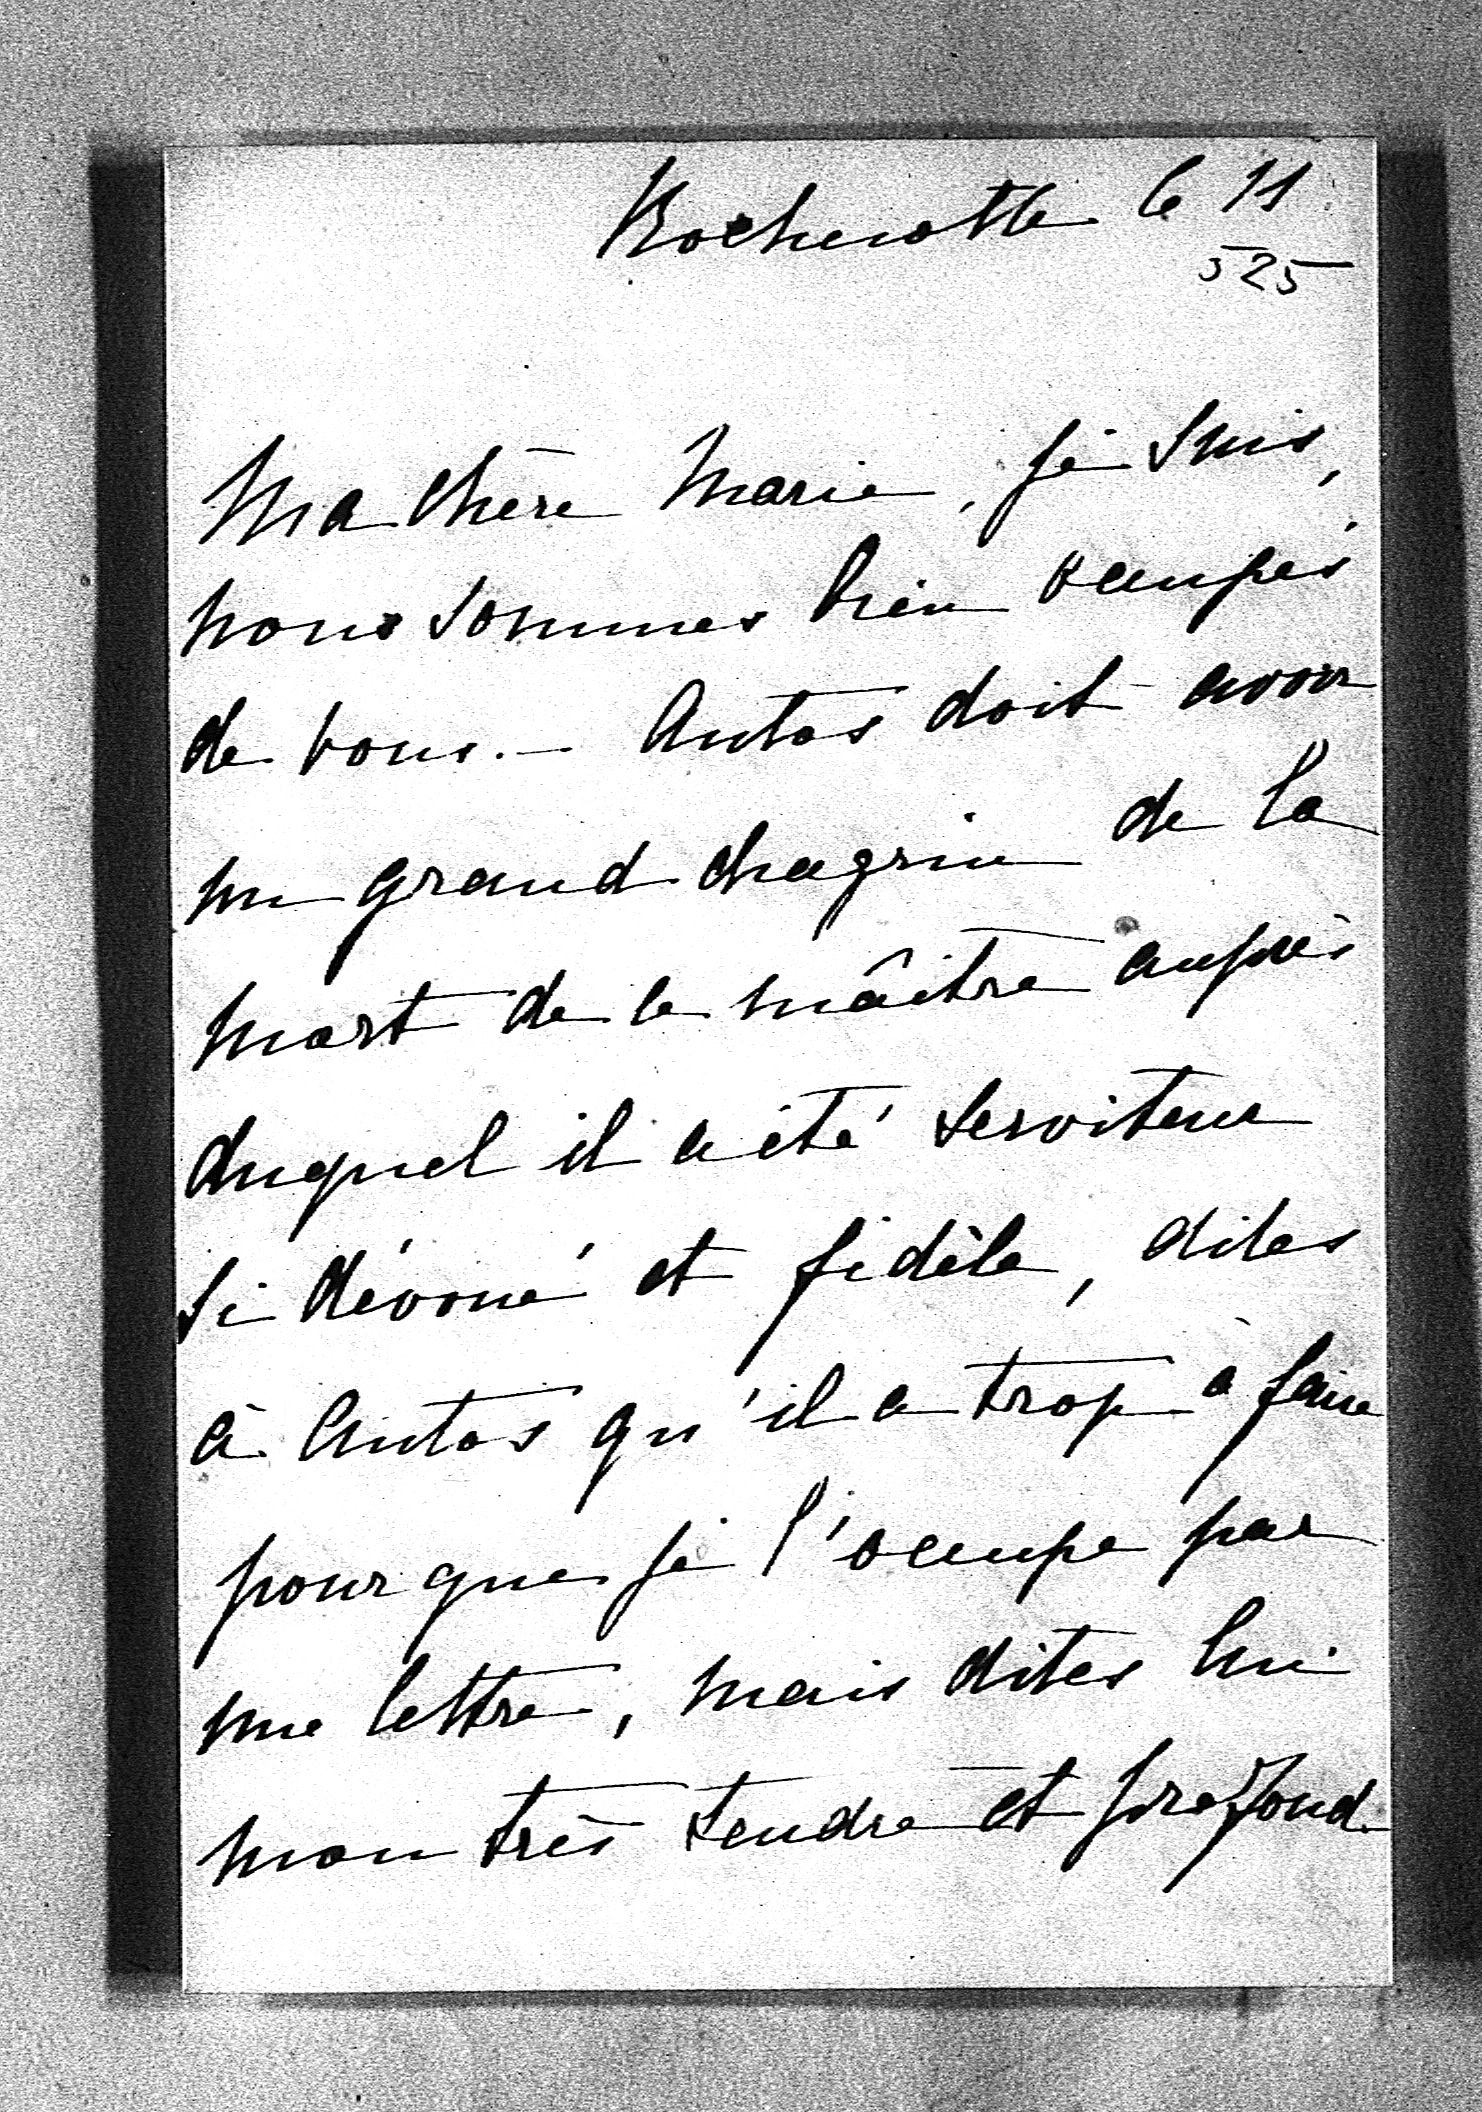 Rochecotte le 11
525
Ma chère Marie, je suis,
nous sommes bien occupés
de vous. — Antos doit avoir
un grand chagrin de la
mort de le maître auprès
duquel il a été serviteur
si dévoué et fidèle, dites
à Antos qu'il a trop à faire
pour que je l'occupe par
une lettre, mais dites lui
mon très tendre et profond